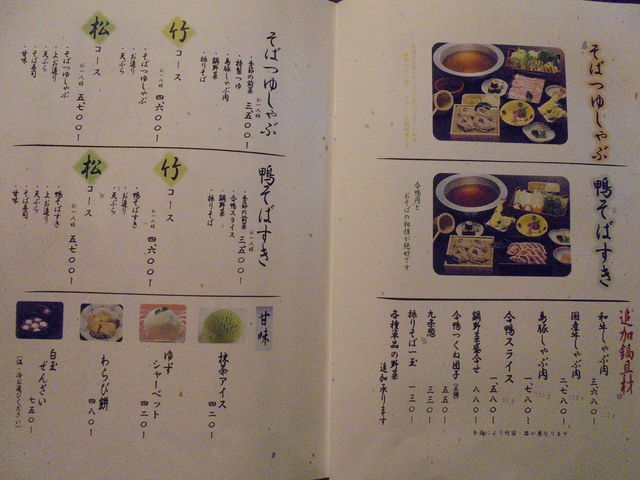 そばつゆしゃぶ
鴨そばすき
合鴨肉と
おそばの相性が絶妙です
追加鍋具材
和牛しゃぶ肉 三六八〇ー
国産牛しゃぶ肉 二七八〇ー
島豚しゃぶ肉 一七八〇ー
合鴨スライス 一五八〇ー
鍋野菜盛合せ 八八〇ー
合鴨つくね団子(五個) 五五〇ー
九条葱 三三〇ー
振りそば一玉 一三〇ー
各種単品の野菜
追加承ります
季節により内容・器が異なります
そばつゆしゃぶ
お一人様 三五〇〇ー
・季節の前菜
・特製つゆ
・島豚しゃぶ肉
・鍋野菜
・振りそば
竹コース
お一人様 四六〇〇ー
・そばつゆしゃぶ
・お造り
・天ぷら
松コース
お一人様 五七〇〇ー
・そばつゆしゃぶ
・上お造り
・天ぷら
・そば寿司
・甘味
鴨そばすき
お一人様 三五〇〇ー
・季節の前菜
・合鴨スライス
・鍋野菜
・振りそば
竹コース
お一人様 四六〇〇ー
・鴨そばすき
・お造り
・天ぷら
松コース
お一人様 五七〇〇ー
・鴨そばすき
・上お造り
・天ぷら
・そば寿司
・甘味
甘味
抹茶アイス 四二〇ー
ゆず
シャーベット 四二〇ー
わらび餅 四八〇ー
白玉
ぜんざい 七五〇ー
(温・冷お選びください)